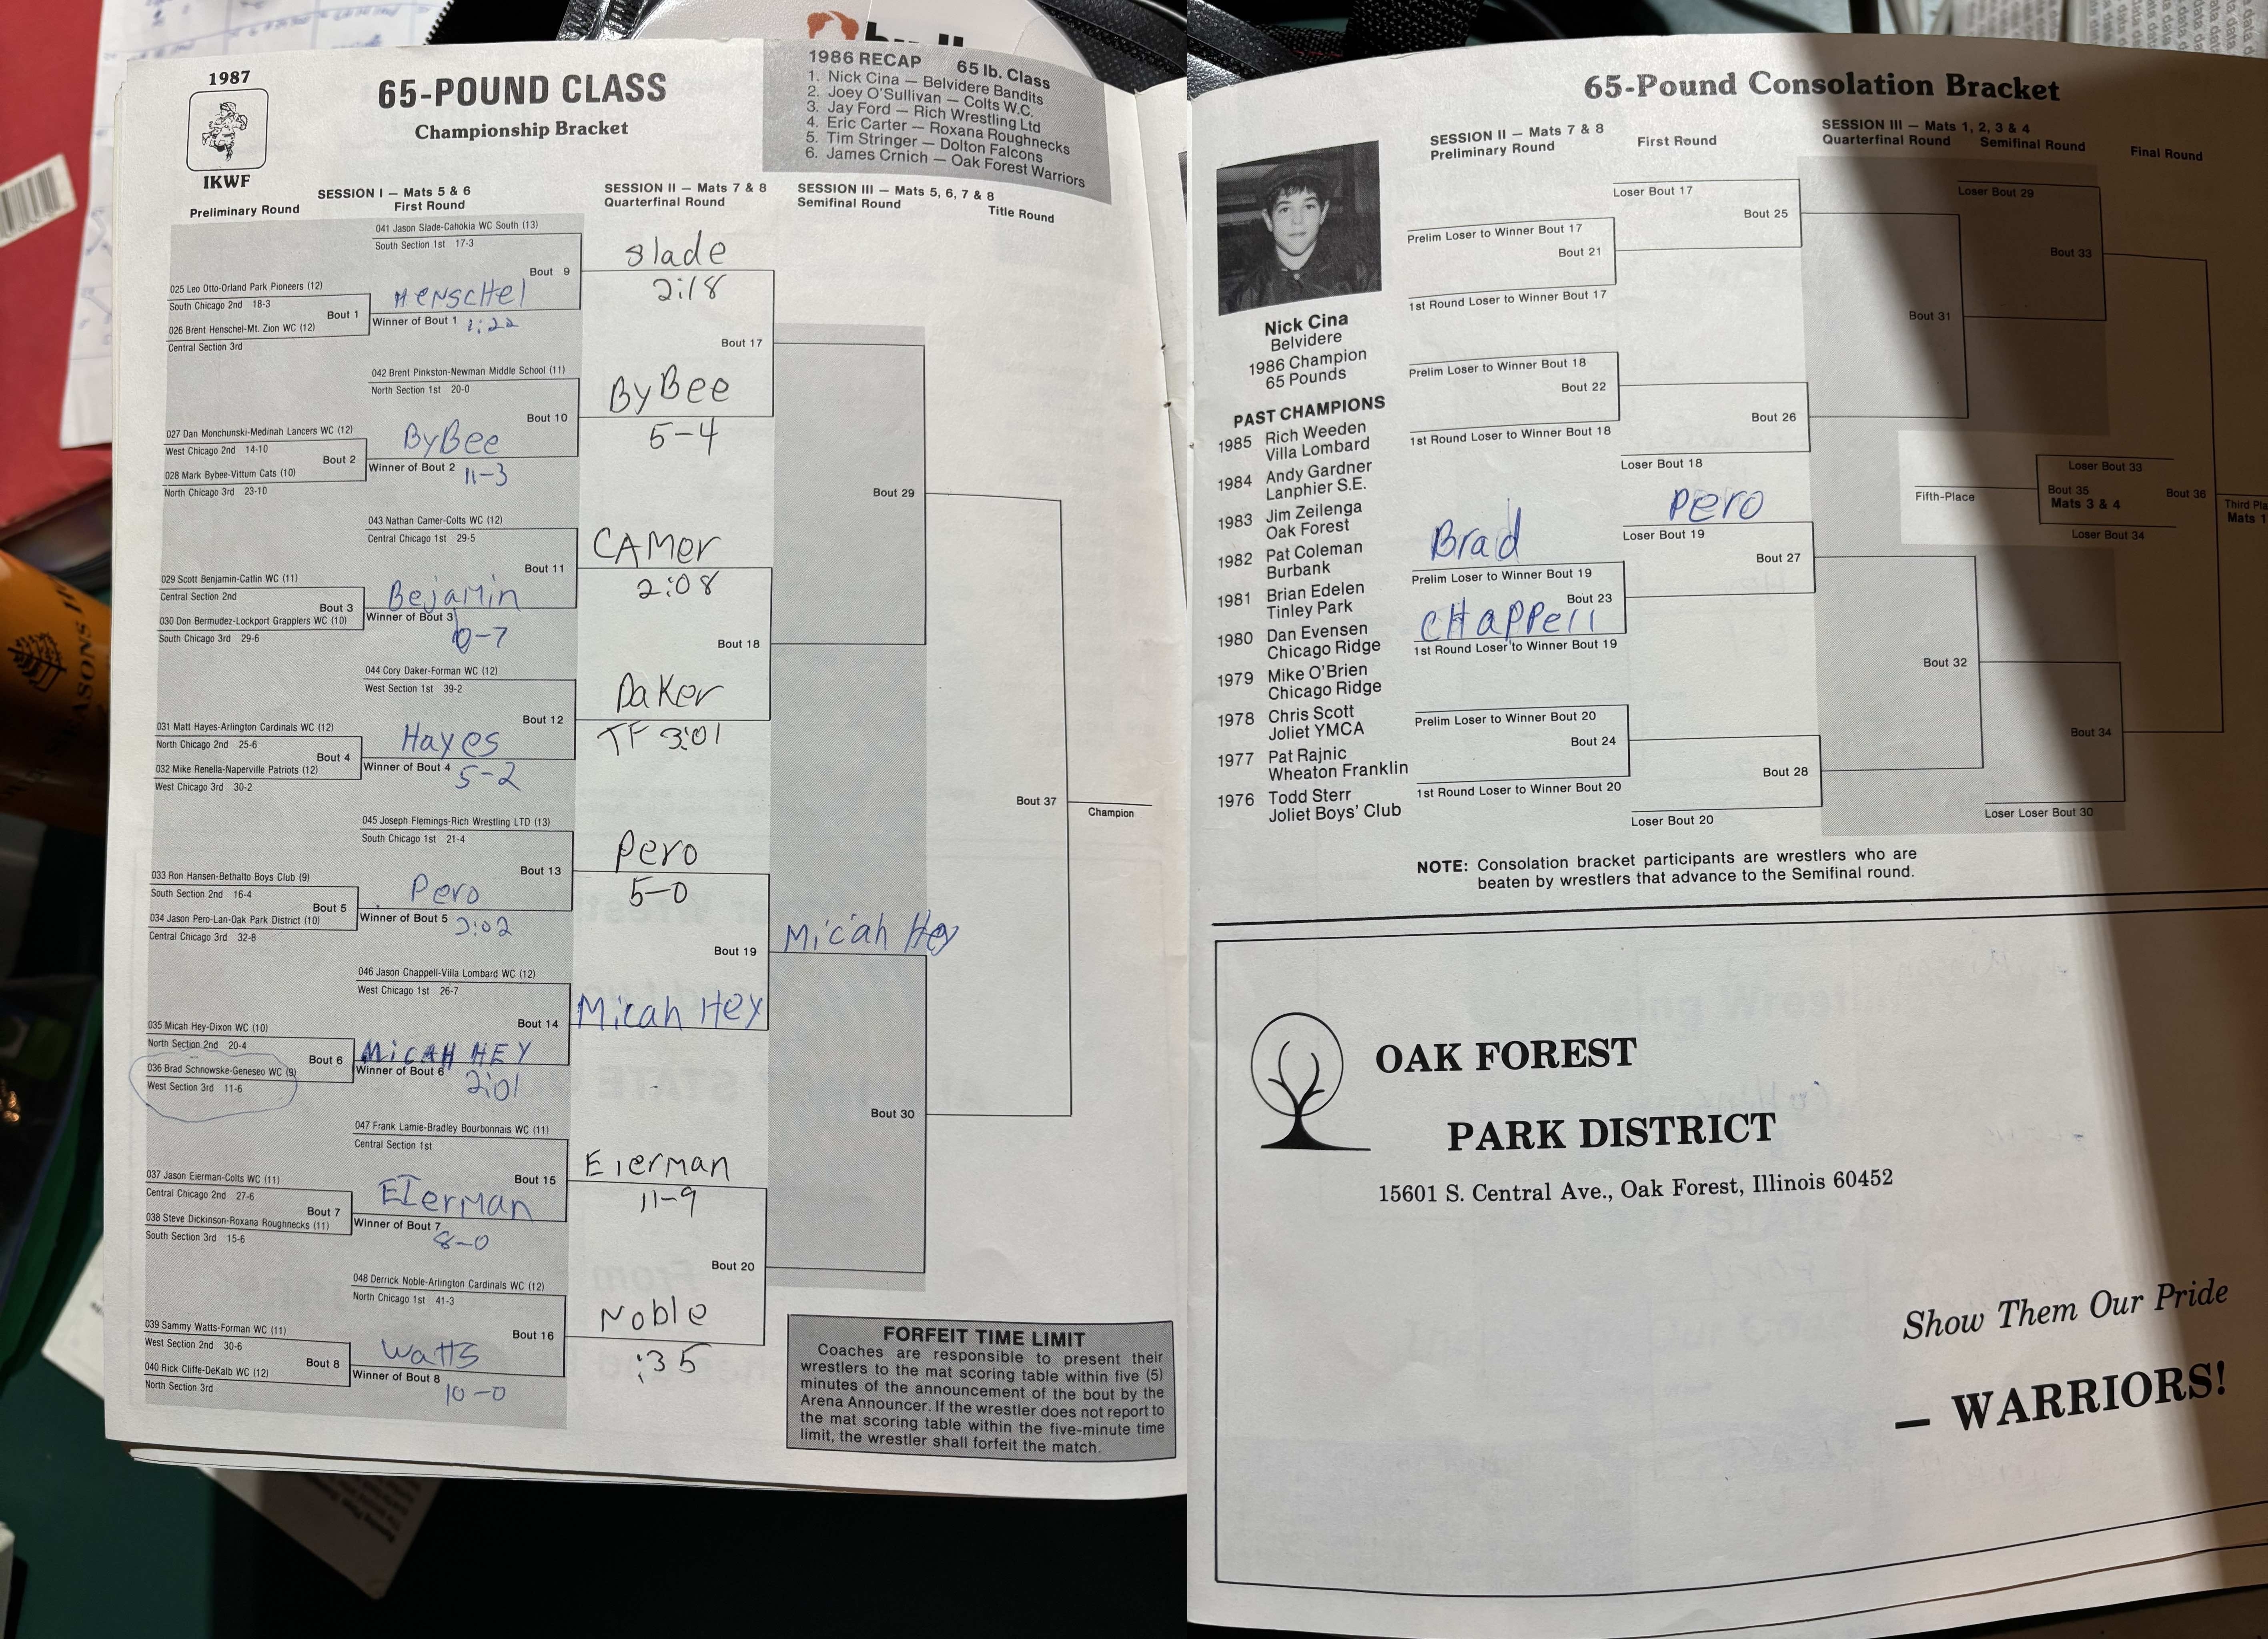 1987
IKWF
65-POUND CLASS
Championship Bracket
1986 RECAP 65 lb. Class
1. Nick Cina — Belvidere Bandits
2. Joey O'Sullivan — Colts W.C.
3. Jay Ford — Rich Wrestling Ltd
4. Eric Carter — Roxana Roughnecks
5. Tim Stringer — Dolton Falcons
6. James Crnich — Oak Forest Warriors
SESSION I — Mats 5 & 6
Preliminary Round First Round
SESSION II — Mats 7 & 8
Quarterfinal Round
SESSION III — Mats 5, 6, 7 & 8
Semifinal Round Title Round
041 Jason Slade-Cahokia WC South (13)
South Section 1st 17-3
Bout 9
025 Leo Otto-Orland Park Pioneers (12)
South Chicago 2nd 18-3
Bout 1
026 Brent Henschel-Mt. Zion WC (12)
Central Section 3rd
Henschel
Winner of Bout 1 1:22
Slade
2:18
Bout 17
042 Brent Pinkston-Newman Middle School (11)
North Section 1st 20-0
Bout 10
027 Dan Monchunski-Medinah Lancers WC (12)
West Chicago 2nd 14-10
Bout 2
028 Mark Bybee-Vittum Cats (10)
North Chicago 3rd 23-10
ByBee
Winner of Bout 2
11-3
ByBee
5-4
Bout 29
043 Nathan Camer-Colts WC (12)
Central Chicago 1st 29-5
Bout 11
029 Scott Benjamin-Catlin WC (11)
Central Section 2nd
Bout 3
030 Don Bermudez-Lockport Grapplers WC (10)
South Chicago 3rd 29-6
Bejamin
Winner of Bout 3
-7
CAMer
2:08
Bout 18
044 Cory Daker-Forman WC (12)
West Section 1st 39-2
Bout 12
031 Matt Hayes-Arlington Cardinals WC (12)
North Chicago 2nd 25-6
Bout 4
032 Mike Renella-Naperville Patriots (12)
West Chicago 3rd 30-2
Hayes
Winner of Bout 4
5-2
Daker
TF 3:01
Bout 37
Champion
045 Joseph Flemings-Rich Wrestling LTD (13)
South Chicago 1st 21-4
Bout 13
033 Ron Hansen-Bethalto Boys Club (9)
South Section 2nd 16-4
Bout 5
034 Jason Pero-Lan-Oak Park District (10)
Central Chicago 3rd 32-8
Pero
Winner of Bout 5
3:02
Pero
5-0
Bout 19
Micah Hey
046 Jason Chappell-Villa Lombard WC (12)
West Chicago 1st 26-7
Bout 14
035 Micah Hey-Dixon WC (10)
North Section 2nd 20-4
Bout 6
036 Brad Schnowske-Geneseo WC (9)
West Section 3rd 11-6
MiCAH HEY
Winner of Bout 6
2:01
Micah Hey
Bout 30
047 Frank Lamie-Bradley Bourbonnais WC (11)
Central Section 1st
Bout 15
037 Jason Eierman-Colts WC (11)
Central Chicago 2nd 27-6
Bout 7
038 Steve Dickinson-Roxana Roughnecks (11)
South Section 3rd 15-6
EIerman
Winner of Bout 7
8-0
Eierman
11-9
Bout 20
048 Derrick Noble-Arlington Cardinals WC (12)
North Chicago 1st 41-3
Bout 16
039 Sammy Watts-Forman WC (11)
West Section 2nd 30-6
Bout 8
040 Rick Cliffe-DeKalb WC (12)
North Section 3rd
Watts
Winner of Bout 8
10-0
Noble
:35
FORFEIT TIME LIMIT
Coaches are responsible to present their
wrestlers to the mat scoring table within five (5)
minutes of the announcement of the bout by the
Arena Announcer. If the wrestler does not report to
the mat scoring table within the five-minute time
limit, the wrestler shall forfeit the match.
65-Pound Consolation Bracket
SESSION II — Mats 7 & 8
Preliminary Round First Round
SESSION III — Mats 1, 2, 3 & 4
Quarterfinal Round Semifinal Round Final Round
Nick Cina
Belvidere
1986 Champion
65 Pounds
PAST CHAMPIONS
1985 Rich Weeden
Villa Lombard
1984 Andy Gardner
Lanphier S.E.
1983 Jim Zeilenga
Oak Forest
1982 Pat Coleman
Burbank
1981 Brian Edelen
Tinley Park
1980 Dan Evensen
Chicago Ridge
1979 Mike O'Brien
Chicago Ridge
1978 Chris Scott
Joliet YMCA
1977 Pat Rajnic
Wheaton Franklin
1976 Todd Sterr
Joliet Boys' Club
Loser Bout 17
Bout 25
Prelim Loser to Winner Bout 17
Bout 21
1st Round Loser to Winner Bout 17
Prelim Loser to Winner Bout 18
Bout 22
1st Round Loser to Winner Bout 18
Bout 26
Loser Bout 18
Pero
Loser Bout 19
Brad
Prelim Loser to Winner Bout 19
Bout 23
CHAPPell
1st Round Loser to Winner Bout 19
Bout 27
Prelim Loser to Winner Bout 20
Bout 24
1st Round Loser to Winner Bout 20
Bout 28
Loser Bout 20
Loser Bout 29
Bout 33
Bout 31
Loser Bout 33
Fifth-Place
Bout 35
Mats 3 & 4
Loser Bout 34
Bout 36
Third Pla
Mats 1
Bout 32
Bout 34
Loser Loser Bout 30
NOTE: Consolation bracket participants are wrestlers who are
beaten by wrestlers that advance to the Semifinal round.
OAK FOREST
PARK DISTRICT
15601 S. Central Ave., Oak Forest, Illinois 60452
Show Them Our Pride
— WARRIORS!